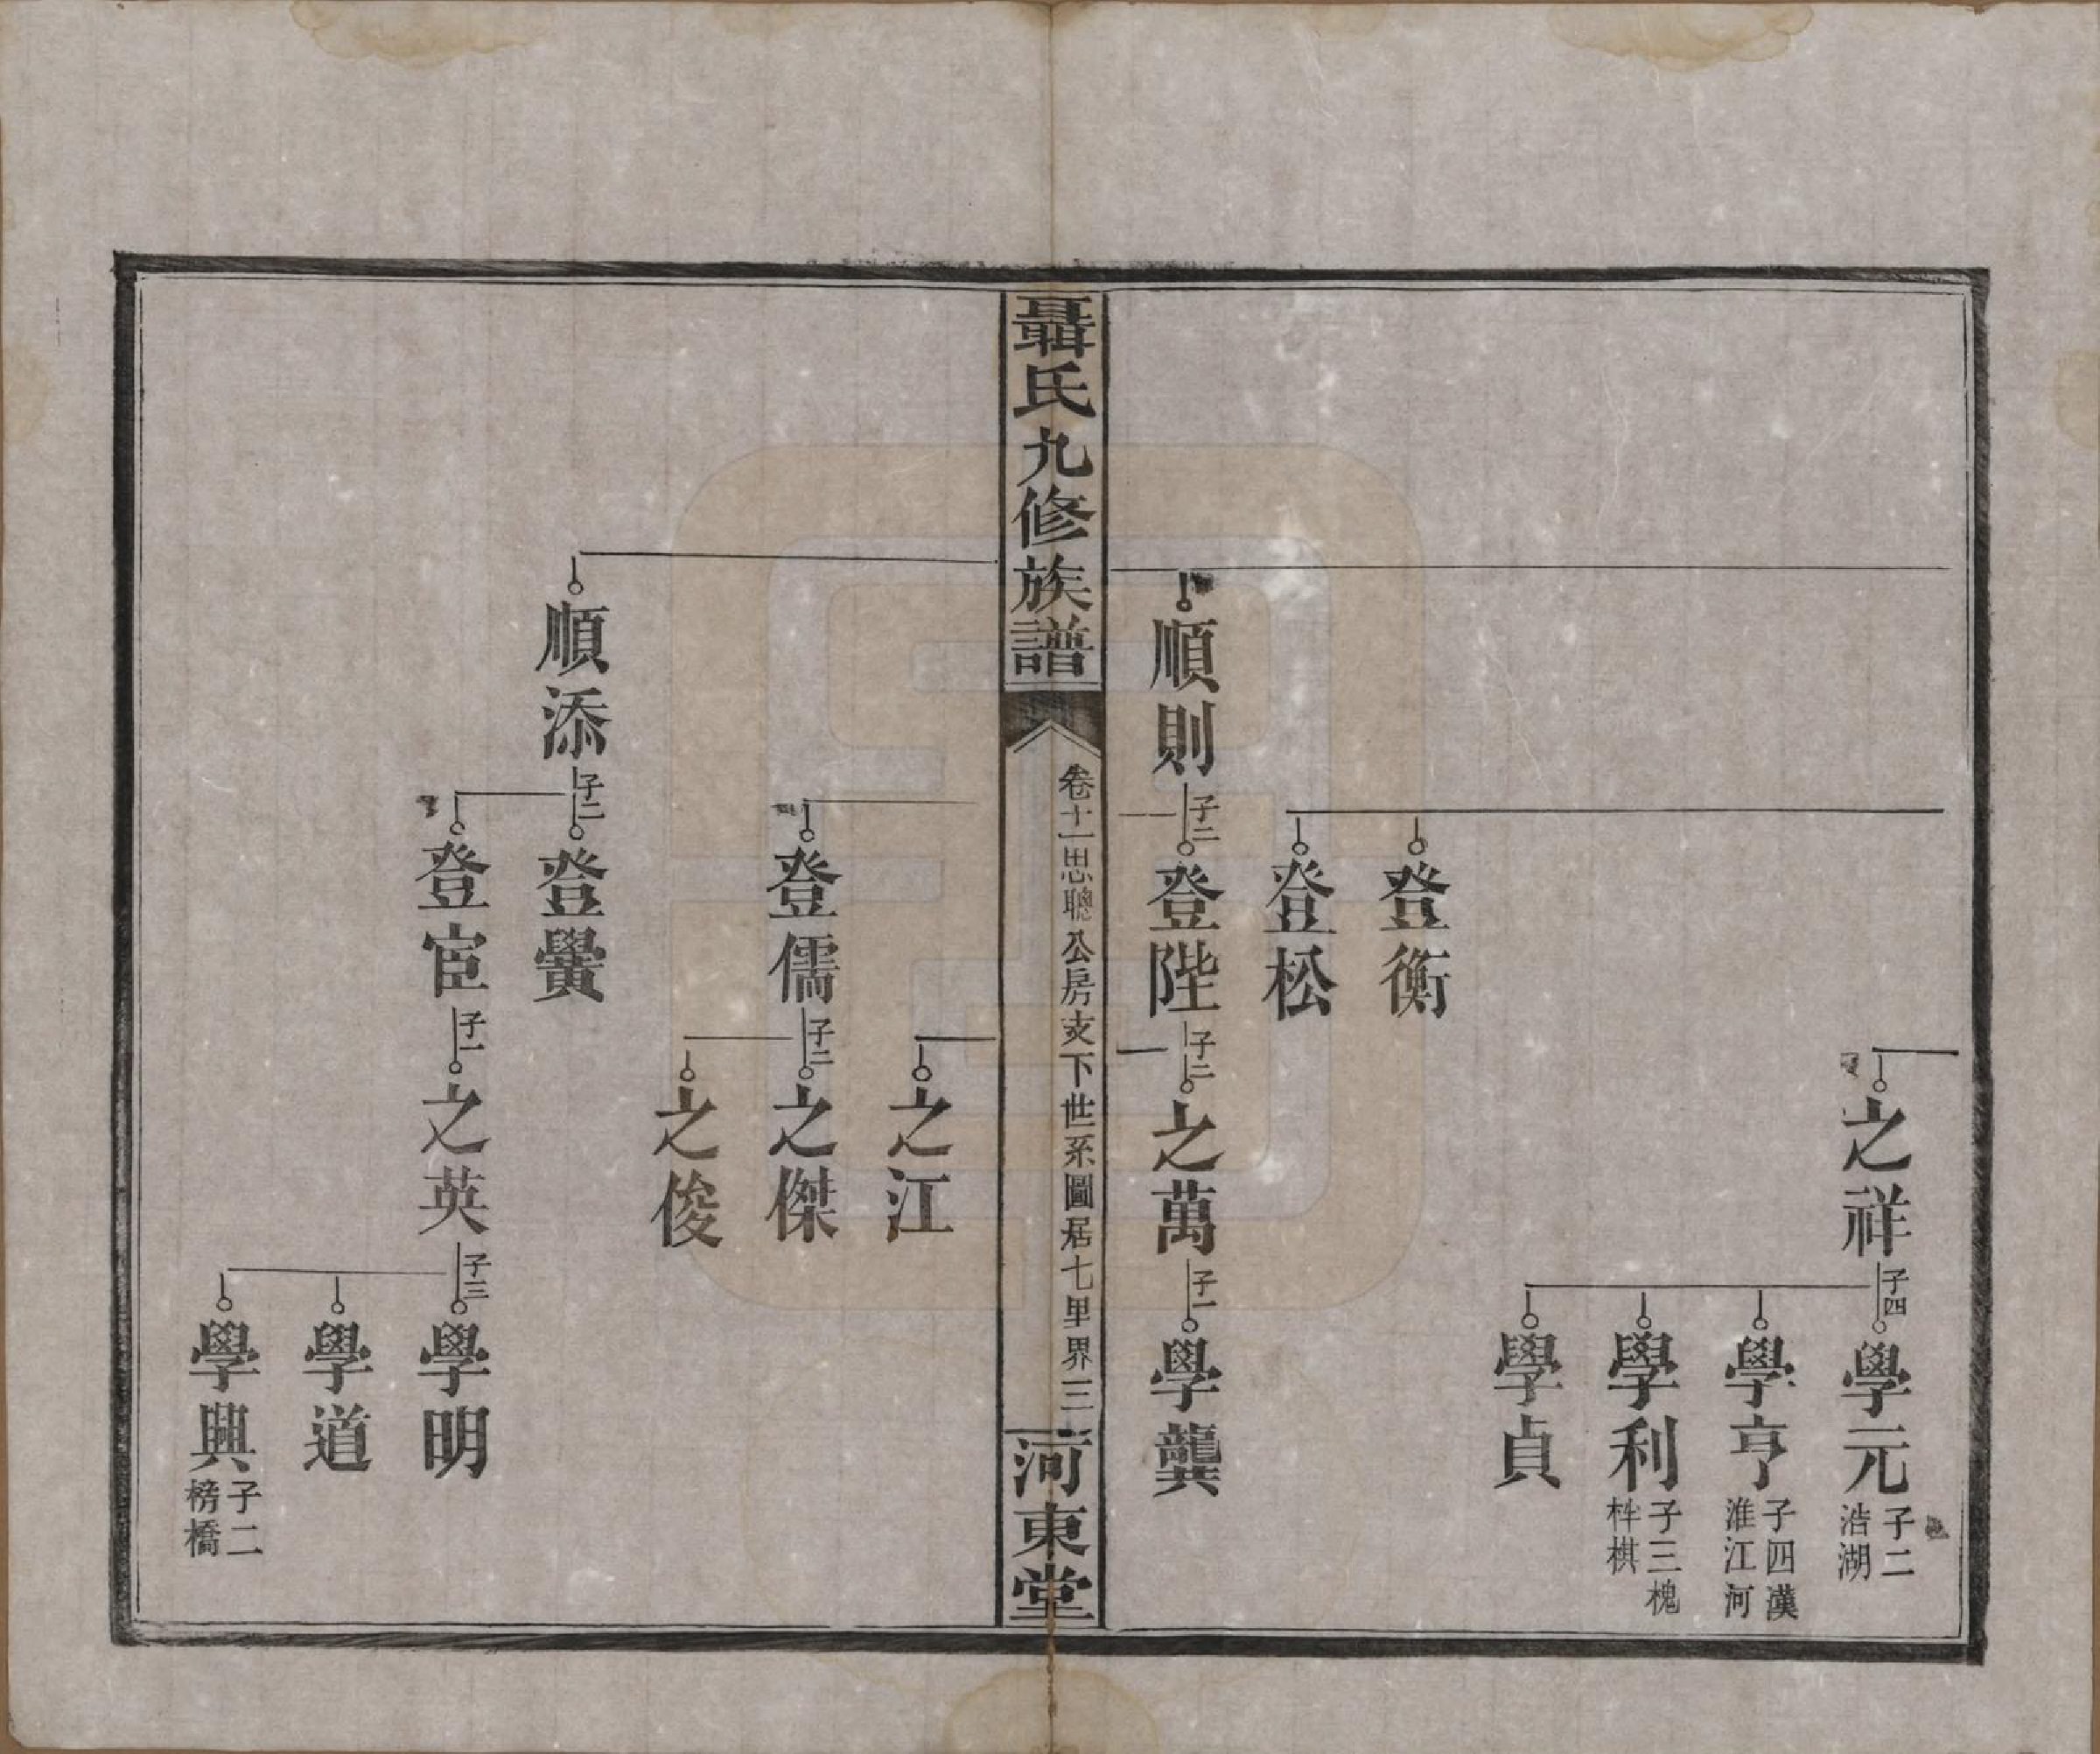 之祥
子四
學元
子二
浩湖
學亨
子四漢
淮江河
學利
子三槐
棋
學貞
登衡
登松
順則
子二
登陛
子二
之萬
子一
學龔
聶氏九修族譜
卷十一思聰公房支下世系圖居七里界
三
河東堂
之江
登儒
子二
之傑
之俊
順添
子二
登黌
登宦
子一
之英
子三
學明
學道
學興
子二
榜橋